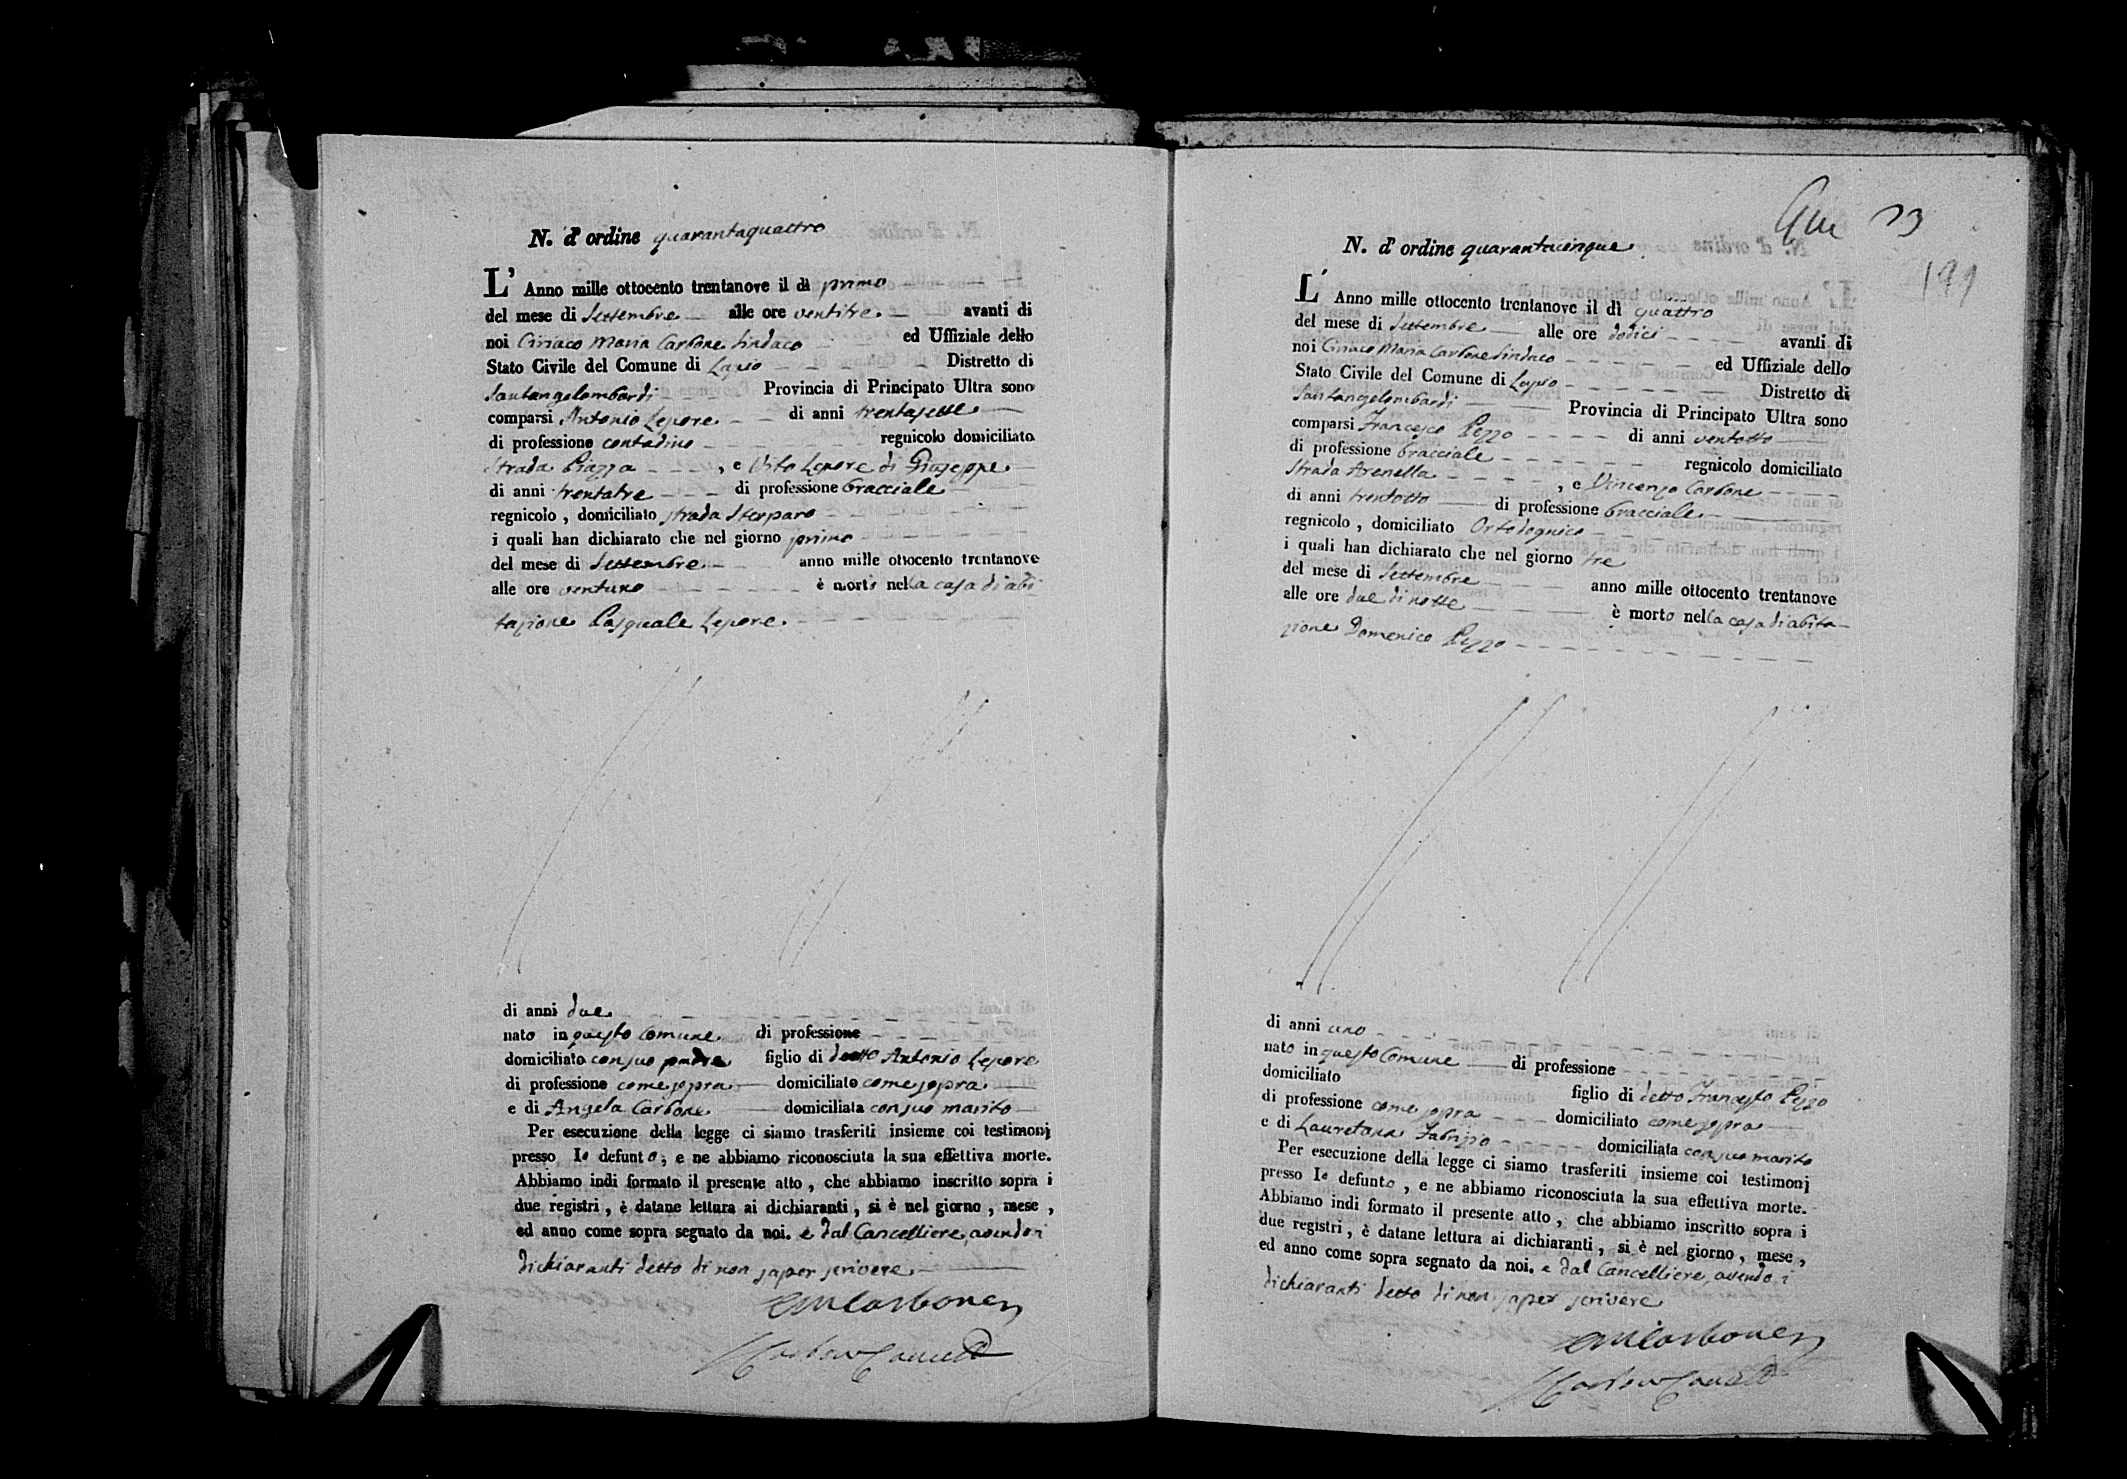 N. d' ordine quarantaquattro
L' Anno mille ottocento trentanove il dì primo
del mese di Settembre alle ore ventitre avanti di
noi Ciriaco Maria Carbone Sindaco ed Uffiziale dello
Stato Civile del Comune di Lapio Distretto di
Santangelombardi Provincia di Principato Ultra sono
comparsi Antonio Lepore di anni trentasette
di professione contadino regnicolo domiciliato
Strada Piazza , e Vito Lepore di Giuseppe
di anni trentatre di professione bracciale
regnicolo , domiciliato strada Sterparo
i quali han dichiarato che nel giorno primo
del mese di Settembre anno mille ottocento trentanove
alle ore ventuno è morto nella casa di abi
tazione Pasquale Lepore
di anni due
nato in questo Comune di professione
domiciliato con suo padre figlio di detto Antonio Lepore
di professione come sopra domiciliato come sopra
e di Angela Carbone domiciliata con suo marito
Per esecuzione della legge ci siamo trasferiti insieme coi testimonj
presso lo defunto , e ne abbiamo riconosciuta la sua effettiva morte.
Abbiamo indi formato il presente atto , che abbiamo inscritto sopra i
due registri , è datane lettura ai dichiaranti , si è nel giorno , mese ,
ed anno come sopra segnato da noi. e dal Cancelliere, avendo i
dichiaranti detto di non saper scrivere
CMCarbone
73
199
N. d' ordine quarantacinque
L' Anno mille ottocento trentanove il dì quattro
del mese di Settembre alle ore dodici avanti di
noi Ciriaco Maria Carbone Sindaco ed Uffiziale dello
Stato Civile del Comune di Lapio Distretto di
Santangelombardi Provincia di Principato Ultra sono
comparsi Francesco Pezzo di anni ventotto
di professione bracciale regnicolo domiciliato
Strada Arenella , e Vincenzo Carbone
di anni trentotto di professione bracciale
regnicolo , domiciliato Ortodognico
i quali han dichiarato che nel giorno tre
del mese di Settembre anno mille ottocento trentanove
alle ore due di notte è morto nella casa di abita
zione Domenico Pezzo
di anni uno
nato in questo Comune di professione
domiciliato figlio di detto Francesco Pezzo
di professione come sopra domiciliato come sopra
e di Lauretana Fabrizio domiciliata con suo marito
Per esecuzione della legge ci siamo trasferiti insieme coi testimonj
presso lo defunto , e ne abbiamo riconosciuta la sua effettiva morte.
Abbiamo indi formato il presente atto , che abbiamo inscritto sopra i
due registri , è datane lettura ai dichiaranti , si è nel giorno , mese ,
ed anno come sopra segnato da noi. e dal Cancelliere, avendo i
dichiaranti detto di non saper scrivere
CMCarbone